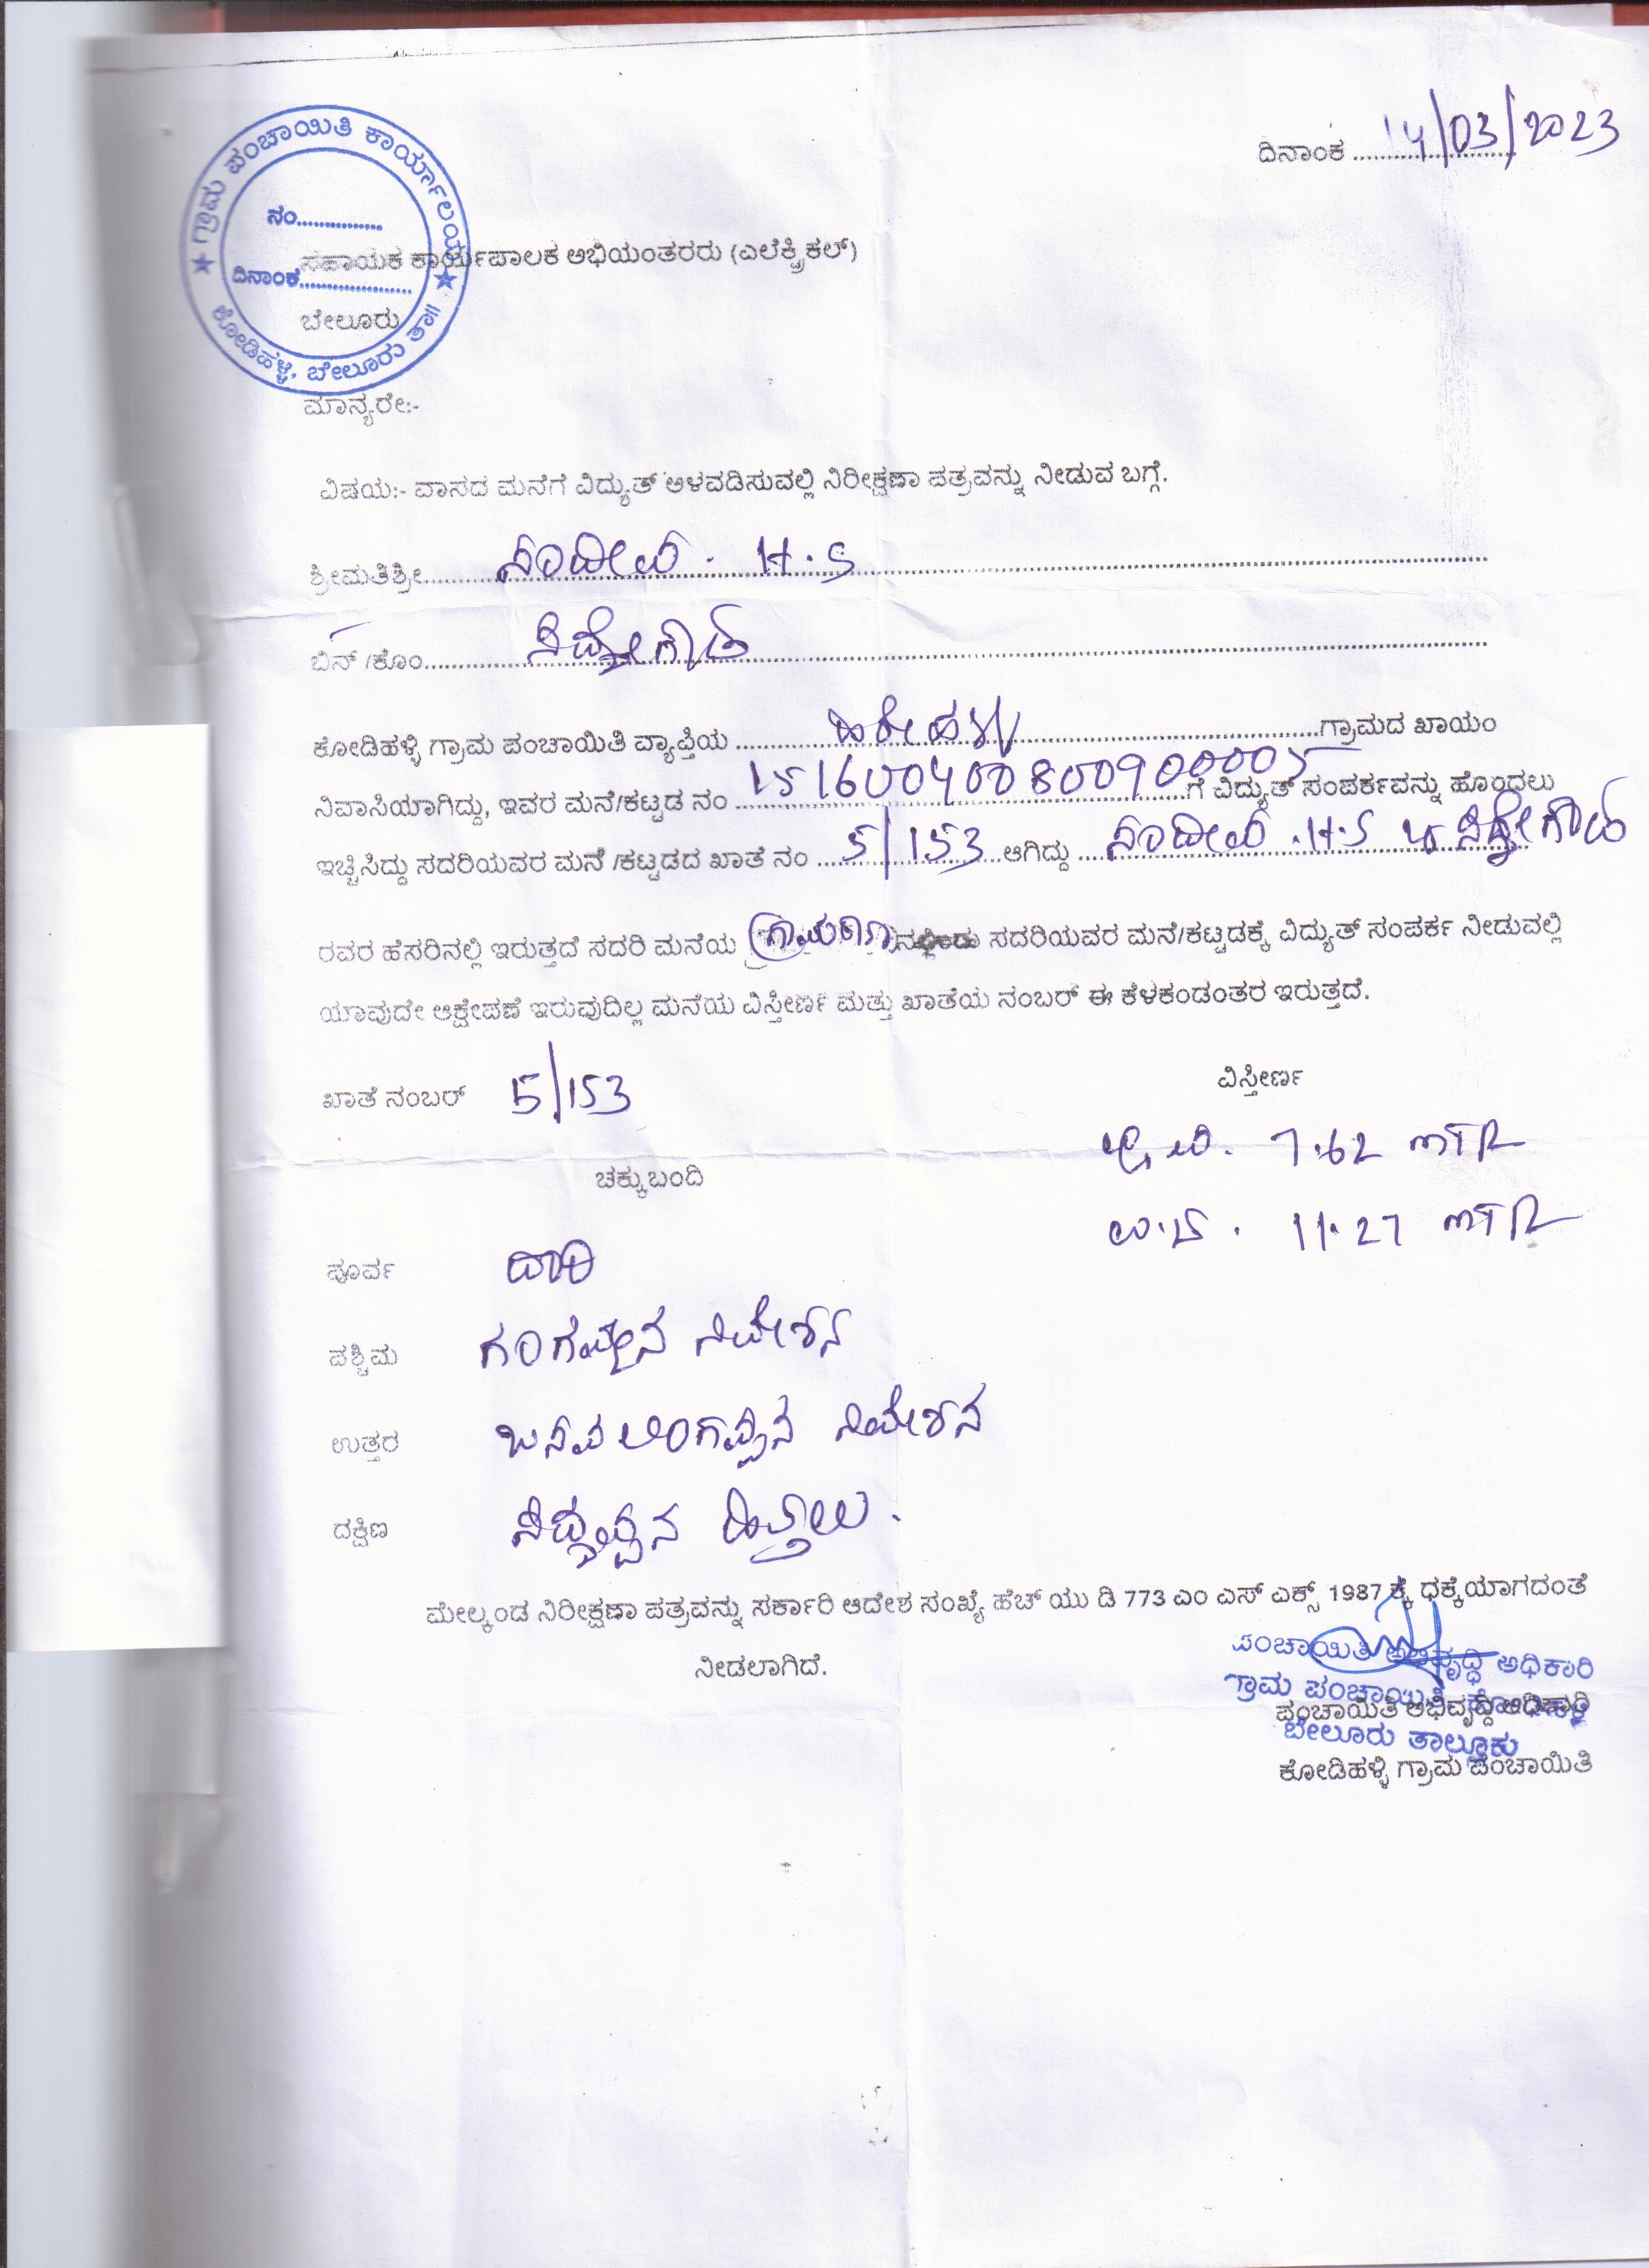 ದಿನಾಂಕ 14/03/2023
ಗ್ರಾಮ ಪಂಚಾಯಿತಿ ಕಾರ್ಯಾಲಯ
ನಂ
ದಿನಾಂಕ
ಕೋಡಿಹಳ್ಳಿ, ಬೇಲೂರು ತಾ॥
ಸಹಾಯಕ ಕಾರ್ಯಪಾಲಕ ಅಭಿಯಂತರರು (ಎಲೆಕ್ಟ್ರಿಕಲ್)
ಬೇಲೂರು
ಮಾನ್ಯರೇ:-
ವಿಷಯ:- ವಾಸದ ಮನೆಗೆ ವಿದ್ಯುತ್ ಅಳವಡಿಸುವಲ್ಲಿ ನಿರೀಕ್ಷಣಾ ಪತ್ರವನ್ನು ನೀಡುವ ಬಗ್ಗೆ.
ಶ್ರೀಮತಿಶ್ರೀ ಸಂದೀಪ್. H.S
ಬಿನ್ /ಕೊಂ ಸಿದ್ದೇಗೌಡ
ಕೋಡಿಹಳ್ಳಿ ಗ್ರಾಮ ಪಂಚಾಯಿತಿ ವ್ಯಾಪ್ತಿಯ ಗ್ರಾಮದ ಖಾಯಂ
ನಿವಾಸಿಯಾಗಿದ್ದು, ಇವರ ಮನೆ/ಕಟ್ಟಡ ನಂ 151600400800900005 ಗೆ ವಿದ್ಯುತ್ ಸಂಪರ್ಕವನ್ನು ಹೊಂದಲು
ಇಚ್ಚಿಸಿದ್ದು ಸದರಿಯವರ ಮನೆ /ಕಟ್ಟಡದ ಖಾತೆ ನಂ 5/153 ಆಗಿದ್ದು ಸಂದೀಪ್ .H.S ಸಿದ್ದೇಗೌಡ
ರವರ ಹೆಸರಿನಲ್ಲಿ ಇರುತ್ತದೆ ಸದರಿ ಮನೆಯ ಸದರಿಯವರ ಮನೆ/ಕಟ್ಟಡಕ್ಕೆ ವಿದ್ಯುತ್ ಸಂಪರ್ಕ ನೀಡುವಲ್ಲಿ
ಯಾವುದೇ ಆಕ್ಷೇಪಣೆ ಇರುವುದಿಲ್ಲ ಮನೆಯ ವಿಸ್ತೀರ್ಣ ಮತ್ತು ಖಾತೆಯ ನಂಬರ್ ಈ ಕೆಳಕಂಡಂತರ ಇರುತ್ತದೆ.
ವಿಸ್ತೀರ್ಣ
ಖಾತೆ ನಂಬರ್ 5/153
7.62 mTR
ಚಕ್ಕುಬಂದಿ
ಉ.ದ. 11.27 mTR
ಪೂರ್ವ ದಾರಿ
ಪಶ್ಚಿಮ ನಿವೇಶನ
ಉತ್ತರ ಬಸವಲಿಂಗಪ್ಪನ ನಿವೇಶನ
ದಕ್ಷಿಣ ಸಿದ್ದಪ್ಪನ ಹಿತ್ತಲು.
ಮೇಲ್ಕಂಡ ನಿರೀಕ್ಷಣಾ ಪತ್ರವನ್ನು ಸರ್ಕಾರಿ ಆದೇಶ ಸಂಖ್ಯೆ ಹೆಚ್ ಯು ಡಿ 773 ಎಂ ಎಸ್ ಎಕ್ಸ್ 1987 ಕ್ಕೆ ಧಕ್ಕೆಯಾಗದಂತೆ
ನೀಡಲಾಗಿದೆ.
ಪಂಚಾಯಿತಿ ಅಭಿವೃದ್ಧಿ ಅಧಿಕಾರಿ
ಗ್ರಾಮ ಪಂಚಾಯಿತಿ ಕೋಡಿಹಳ್ಳಿ
ಪಂಚಾಯಿತಿ ಅಭಿವೃದ್ದಿ ಅಧಿಕಾರಿ
ಬೇಲೂರು ತಾಲ್ಲೂಕು
ಕೋಡಿಹಳ್ಳಿ ಗ್ರಾಮ ಪಂಚಾಯಿತಿ